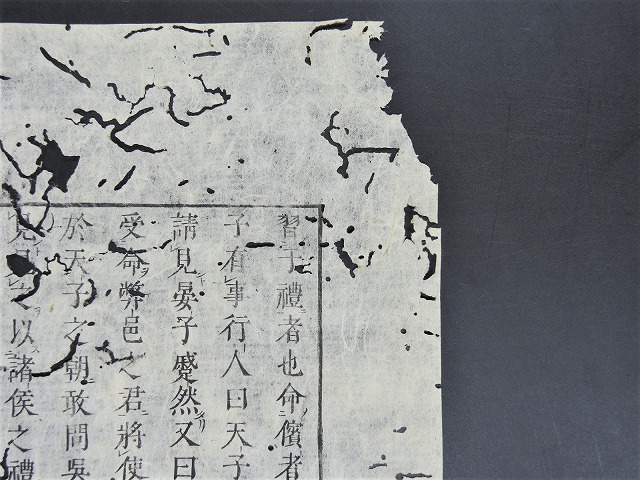 習于禮者也命儐者
子有事行人曰天子
請見晏子蹙然又曰
受命弊邑之君將使
於天子之朝敢問吳
見之以諸侯之禮